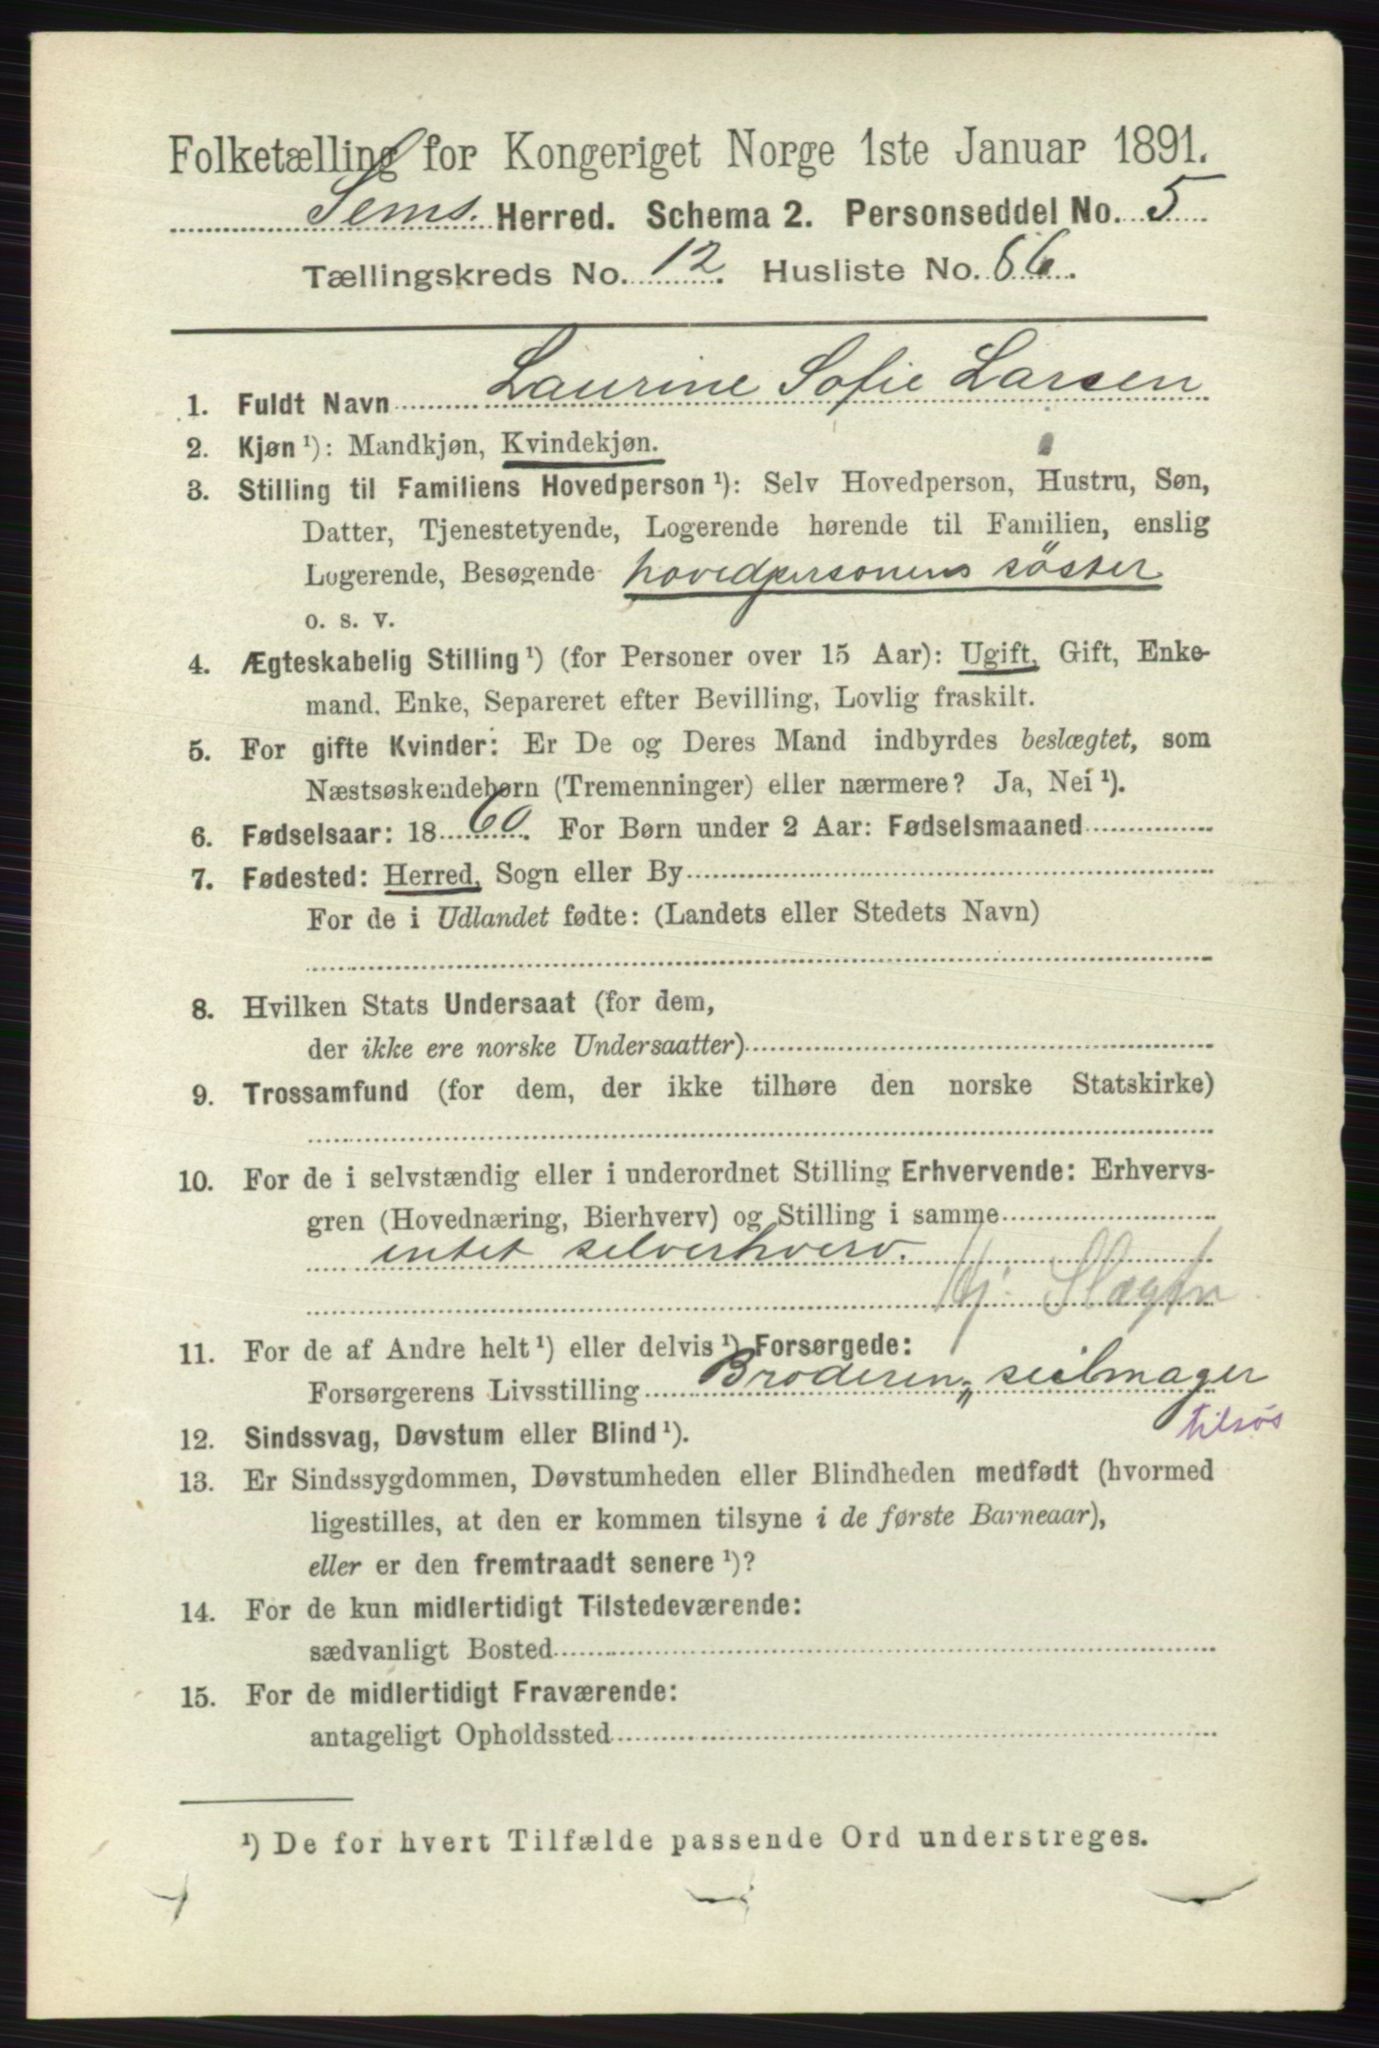 Folketælling for Kongeriget Norge 1ste Januar 1891.
Sems. Herred. Schema 2. Personseddel No. 5
Tællingskreds No. 12. Husliste No. 66.
1. Fuldt Navn Laurine Sofie Larsen
2. Kjøn ¹): Mandkjøn, Kvindekjøn.
3. Stilling til Familiens Hovedperson ¹): Selv Hovedperson, Hustru, Søn,
Datter, Tjenestetyende, Logerende hørende til Familien, enslig
Logerende, Besøgende hovedpersonens söster
o. s. v.
4. Ægteskabelig Stilling ¹) (for Personer over 15 Aar): Ugift, Gift, Enke-
mand, Enke, Separeret efter Bevilling, Lovlig fraskilt.
5. For gifte Kvinder: Er De og Deres Mand indbyrdes beslægtet, som
Næstsøskendebørn (Tremenninger) eller nærmere? Ja, Nei ¹).
6. Fødselsaar: 1860. For Børn under 2 Aar: Fødselsmaaned
7. Fødested: Herred, Sogn eller By
For de i Udlandet fødte: (Landets eller Stedets Navn)
8. Hvilken Stats Undersaat (for dem,
der ikke ere norske Undersaatter)
9. Trossamfund (for dem, der ikke tilhøre den norske Statskirke)
10. For de i selvstændig eller i underordnet Stilling Erhvervende: Erhvervs-
gren (Hovednæring, Bierhverv) og Stilling i samme
intet selverhverv.
Hj. Slægtn
11. For de af Andre helt ¹) eller delvis ¹) Forsørgede:
Forsørgerens Livsstilling Broderen „ seilmager
tilsøs
12. Sindssvag, Døvstum eller Blind ¹).
13. Er Sindssygdommen, Døvstumheden eller Blindheden medfødt (hvormed
ligestilles, at den er kommen tilsyne i de første Barneaar),
eller er den fremtraadt senere ¹)?
14. For de kun midlertidigt Tilstedeværende:
sædvanligt Bosted
15. For de midlertidigt Fraværende:
antageligt Opholdssted
¹) De for hvert Tilfælde passende Ord understreges.